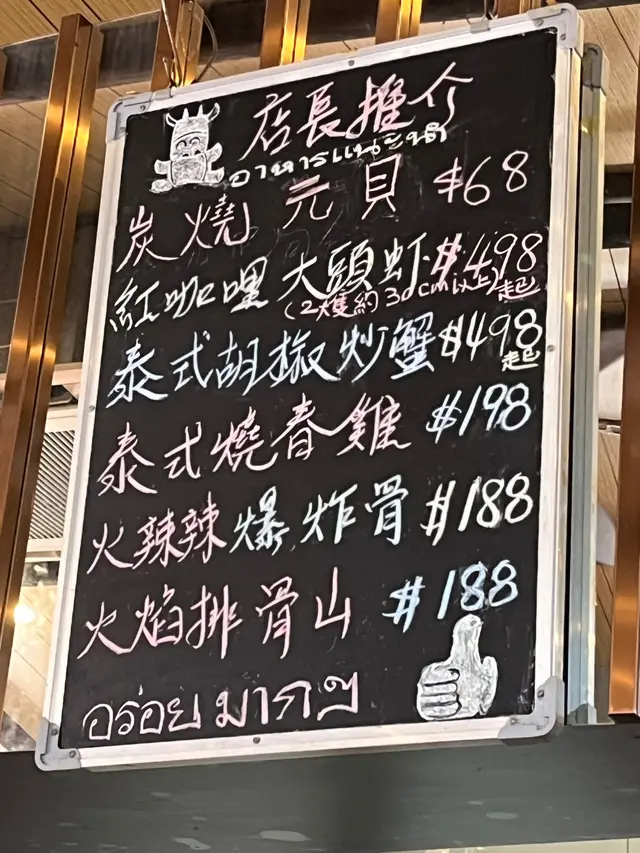 店長推介
อาหารแนะนำ
炭燒元貝 $68
紅咖哩大頭蝦 $498起
(2隻約30cm以上)
泰式胡椒炒蟹 $498起
泰式燒春雞 $198
火辣辣爆炸骨 $188
火焰排骨山 $188
อร่อยมากๆ